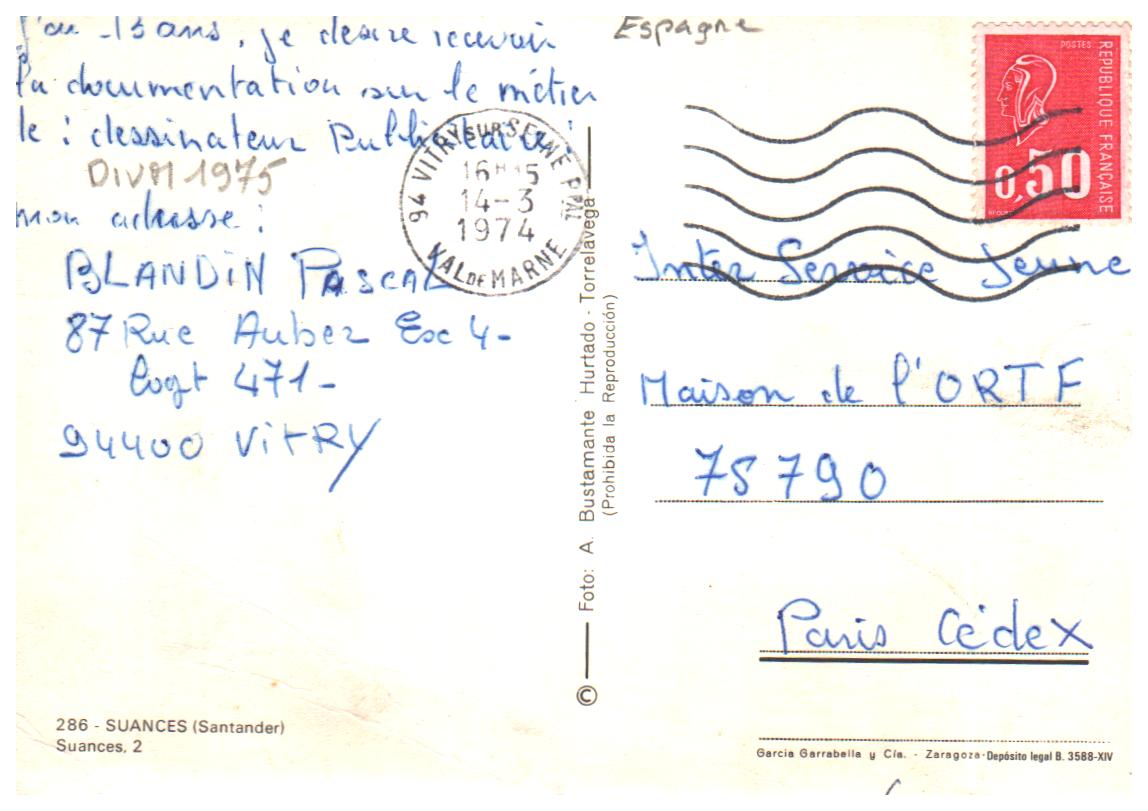 j'ai 13 ans, je desire recevoir
la documentation sur le métier
de : dessinateur Publicitaire
DIVM 1975
mon adresse :
BLANDIN PASCAL
87 Rue Auber Esc 4-
Logt 471-
94400 VITRY
286 - SUANCES (Santander)
Suances, 2
94 VITRY SUR SEINE PPAL
16H15
14-3
1974
VAL DE MARNE
© Foto: A. Bustamante Hurtado - Torrelavega
(Prohibida la Reproducción)
Espagne
POSTES
REPUBLIQUE FRANÇAISE
0,50
Inter Service Jeune
Maison de l'ORTF
75790
Paris Cédex
Garcia Garrabella y Cía. - Zaragoza-Depósito legal B. 3588-XIV